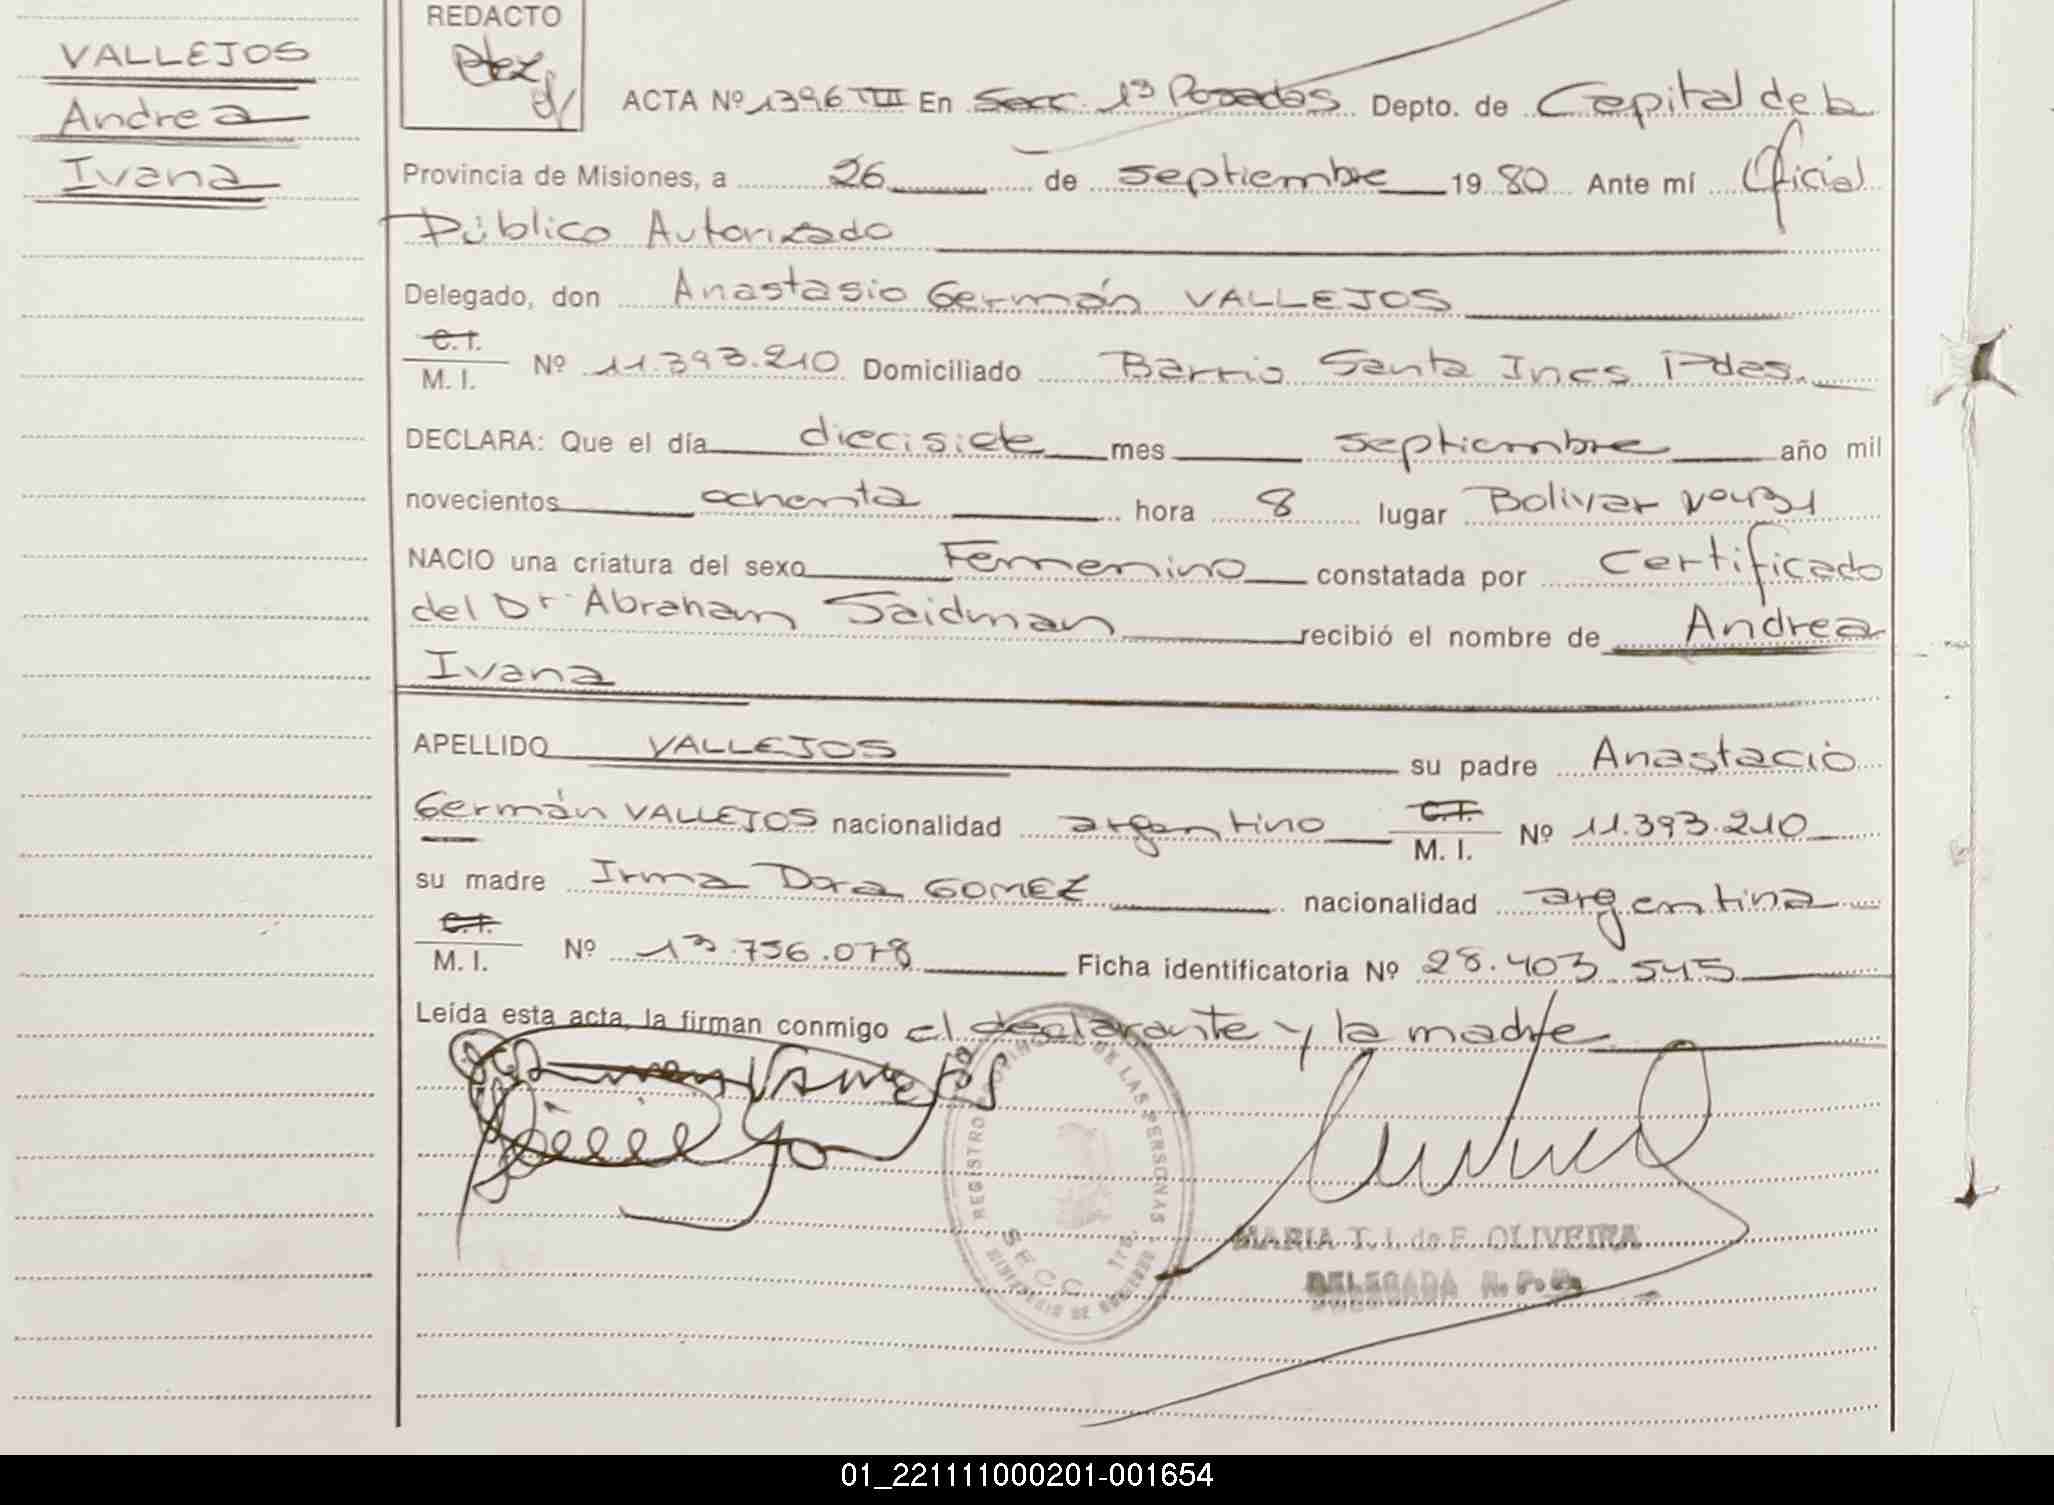 VALLEJOS
Andrea
Ivana
REDACTO
ACTA Nº 1396 TIII En Secc. 1ª Posadas Depto. de Capital de la
Provincia de Misiones, a 26 de septiembre 19 80 Ante mí Oficial
Público Autorizado
Delegado, don Anastasio Germán VALLEJOS
C.I.
M. I. Nº 11.393.210 Domiciliado Barrio Santa Ines Pdas.
DECLARA: Que el día diecisiete mes septiembre año mil
novecientos ochenta hora 8 lugar Bolivar Nº431
NACIO una criatura del sexo Femenino constatada por Certificado
del Dr. Abraham Saidman recibió el nombre de Andrea
Ivana
APELLIDO VALLEJOS su padre Anastacio
Germán VALLEJOS nacionalidad argentino C.I. M. I. Nº 11.393.210
su madre Irma Dora GOMEZ nacionalidad argentina
C.I.
M. I. Nº 13.756.078 Ficha identificatoria Nº 28.403.545
Leída esta acta, la firman conmigo el declarante y la madre
REGISTRO PROVINCIAL DE LAS PERSONAS
SECC. 1ra.
MINISTERIO DE GOBIERNO
MARIA T. I. de F. OLIVEIRA
DELEGADA R. P. P.
01_221111000201-001654